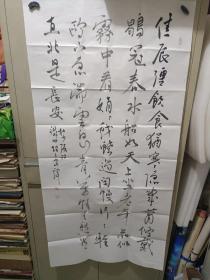 佳辰彊飲食猶寒隱几蕭條戴
鶡冠春水船如天上坐老年花似
霧中看娟娟戲蝶過閒幔片片輕
鷗下急湍雲白山青萬餘里愁看
直北是長安